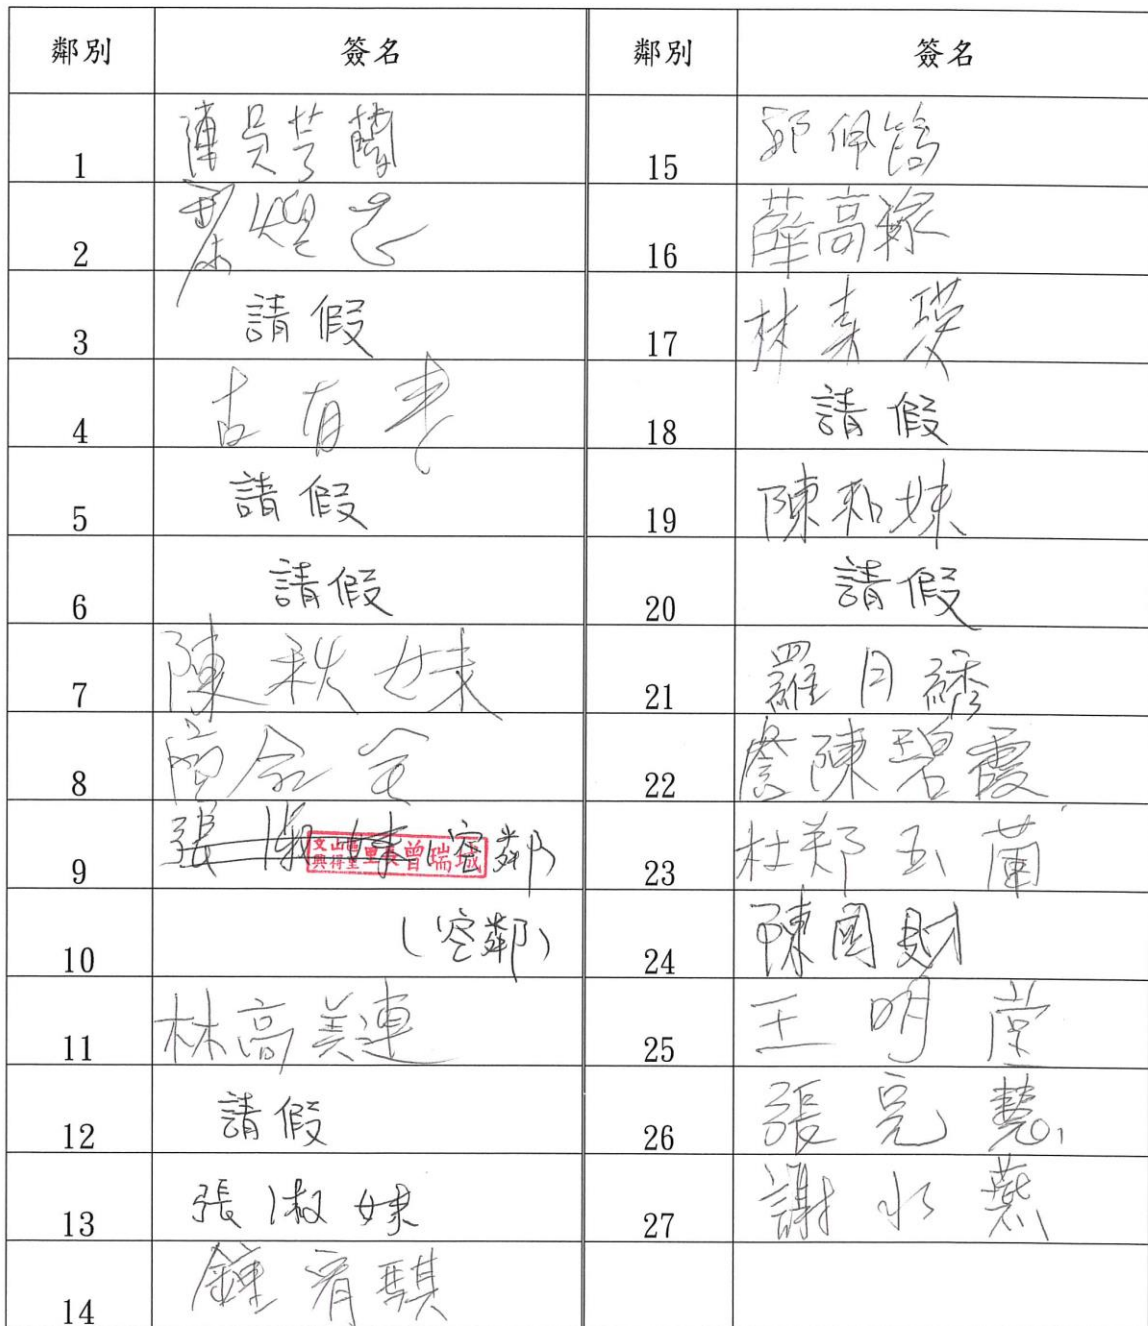 鄰別 簽名 鄰別 簽名
1 陳吳芳蘭 15 郭佩
2 16 薛高
3 請假 17 林素瑛
4 古有 18 請假
5 請假 19 陳和妹
6 請假 20 請假
7 陳秋妹 21 羅月綉
8 22 詹陳碧霞
9 張淑妹 (空鄰) 文山區興得里 里長 曾瑞城 23 杜鄭玉蘭
10 (空鄰) 24 陳國財
11 林高美連 25 王明堂
12 請假 26 張完慧
13 張淑妹 27 謝水燕
14 鍾宥騏